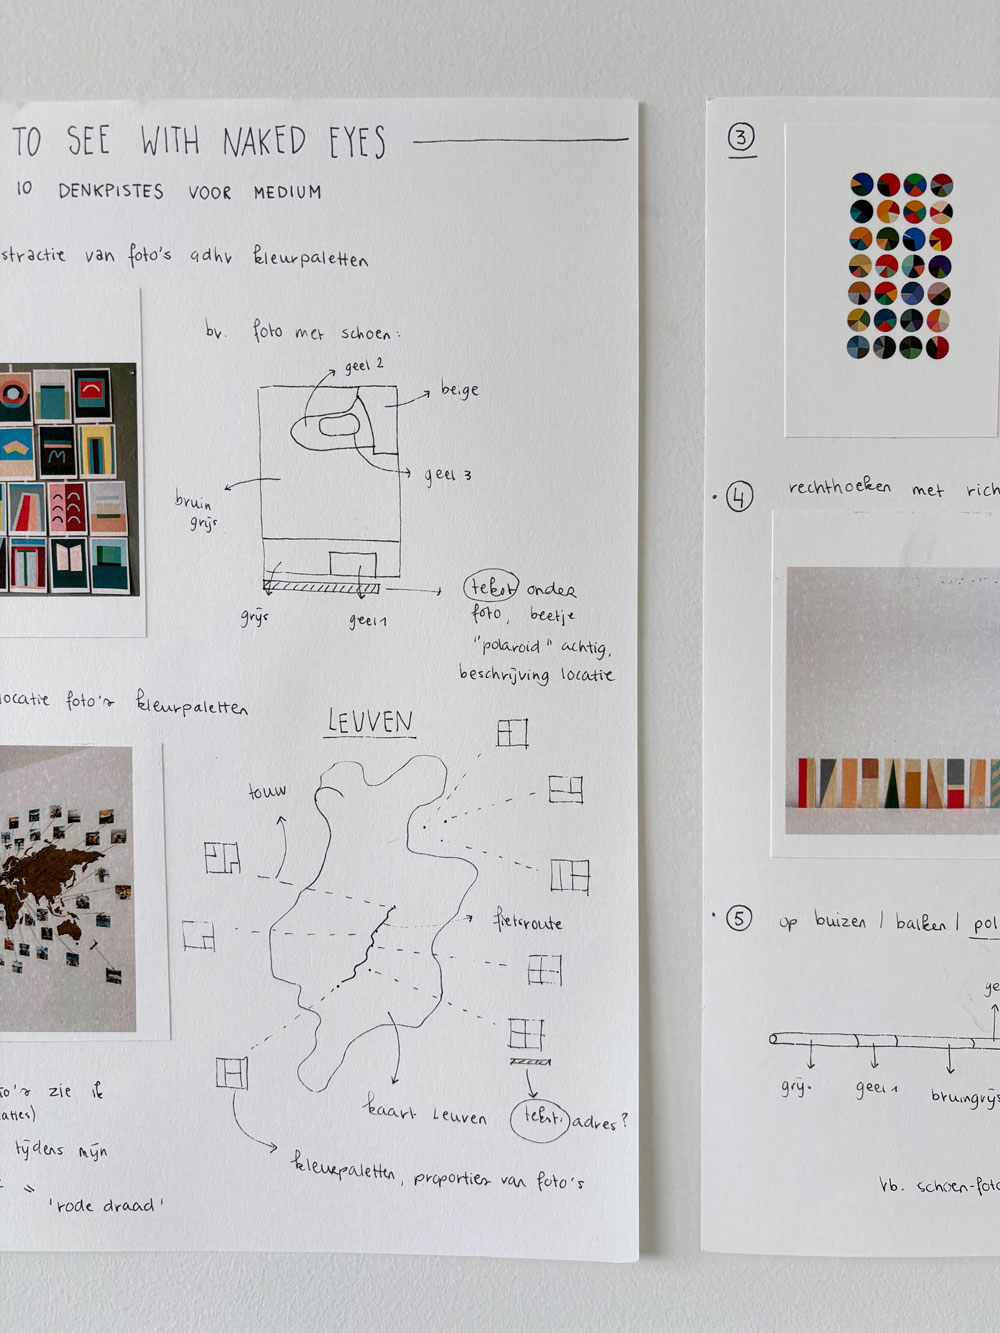 TO SEE WITH NAKED EYES
10 DENKPISTES VOOR MEDIUM
stractie van foto's adhv kleurpaletten
bv. foto met schoen:
geel 2
beige
geel 3
bruin
grijs
grijs
geel 1
tekst onder
foto, beetje
"polaroid" achtig,
beschrijving locatie
locatie foto's kleurpaletten
LEUVEN
touw
fietsroute
kaart Leuven
tekst: adres?
kleurpaletten, proporties van foto's
to's zie ik
aties)
tijdens mijn
'rode draad'
3
4
rechthoeken met rich
5
op buizen / balken / pol
ge
grijs
geel 1
bruingrijs
vb. schoen-foto